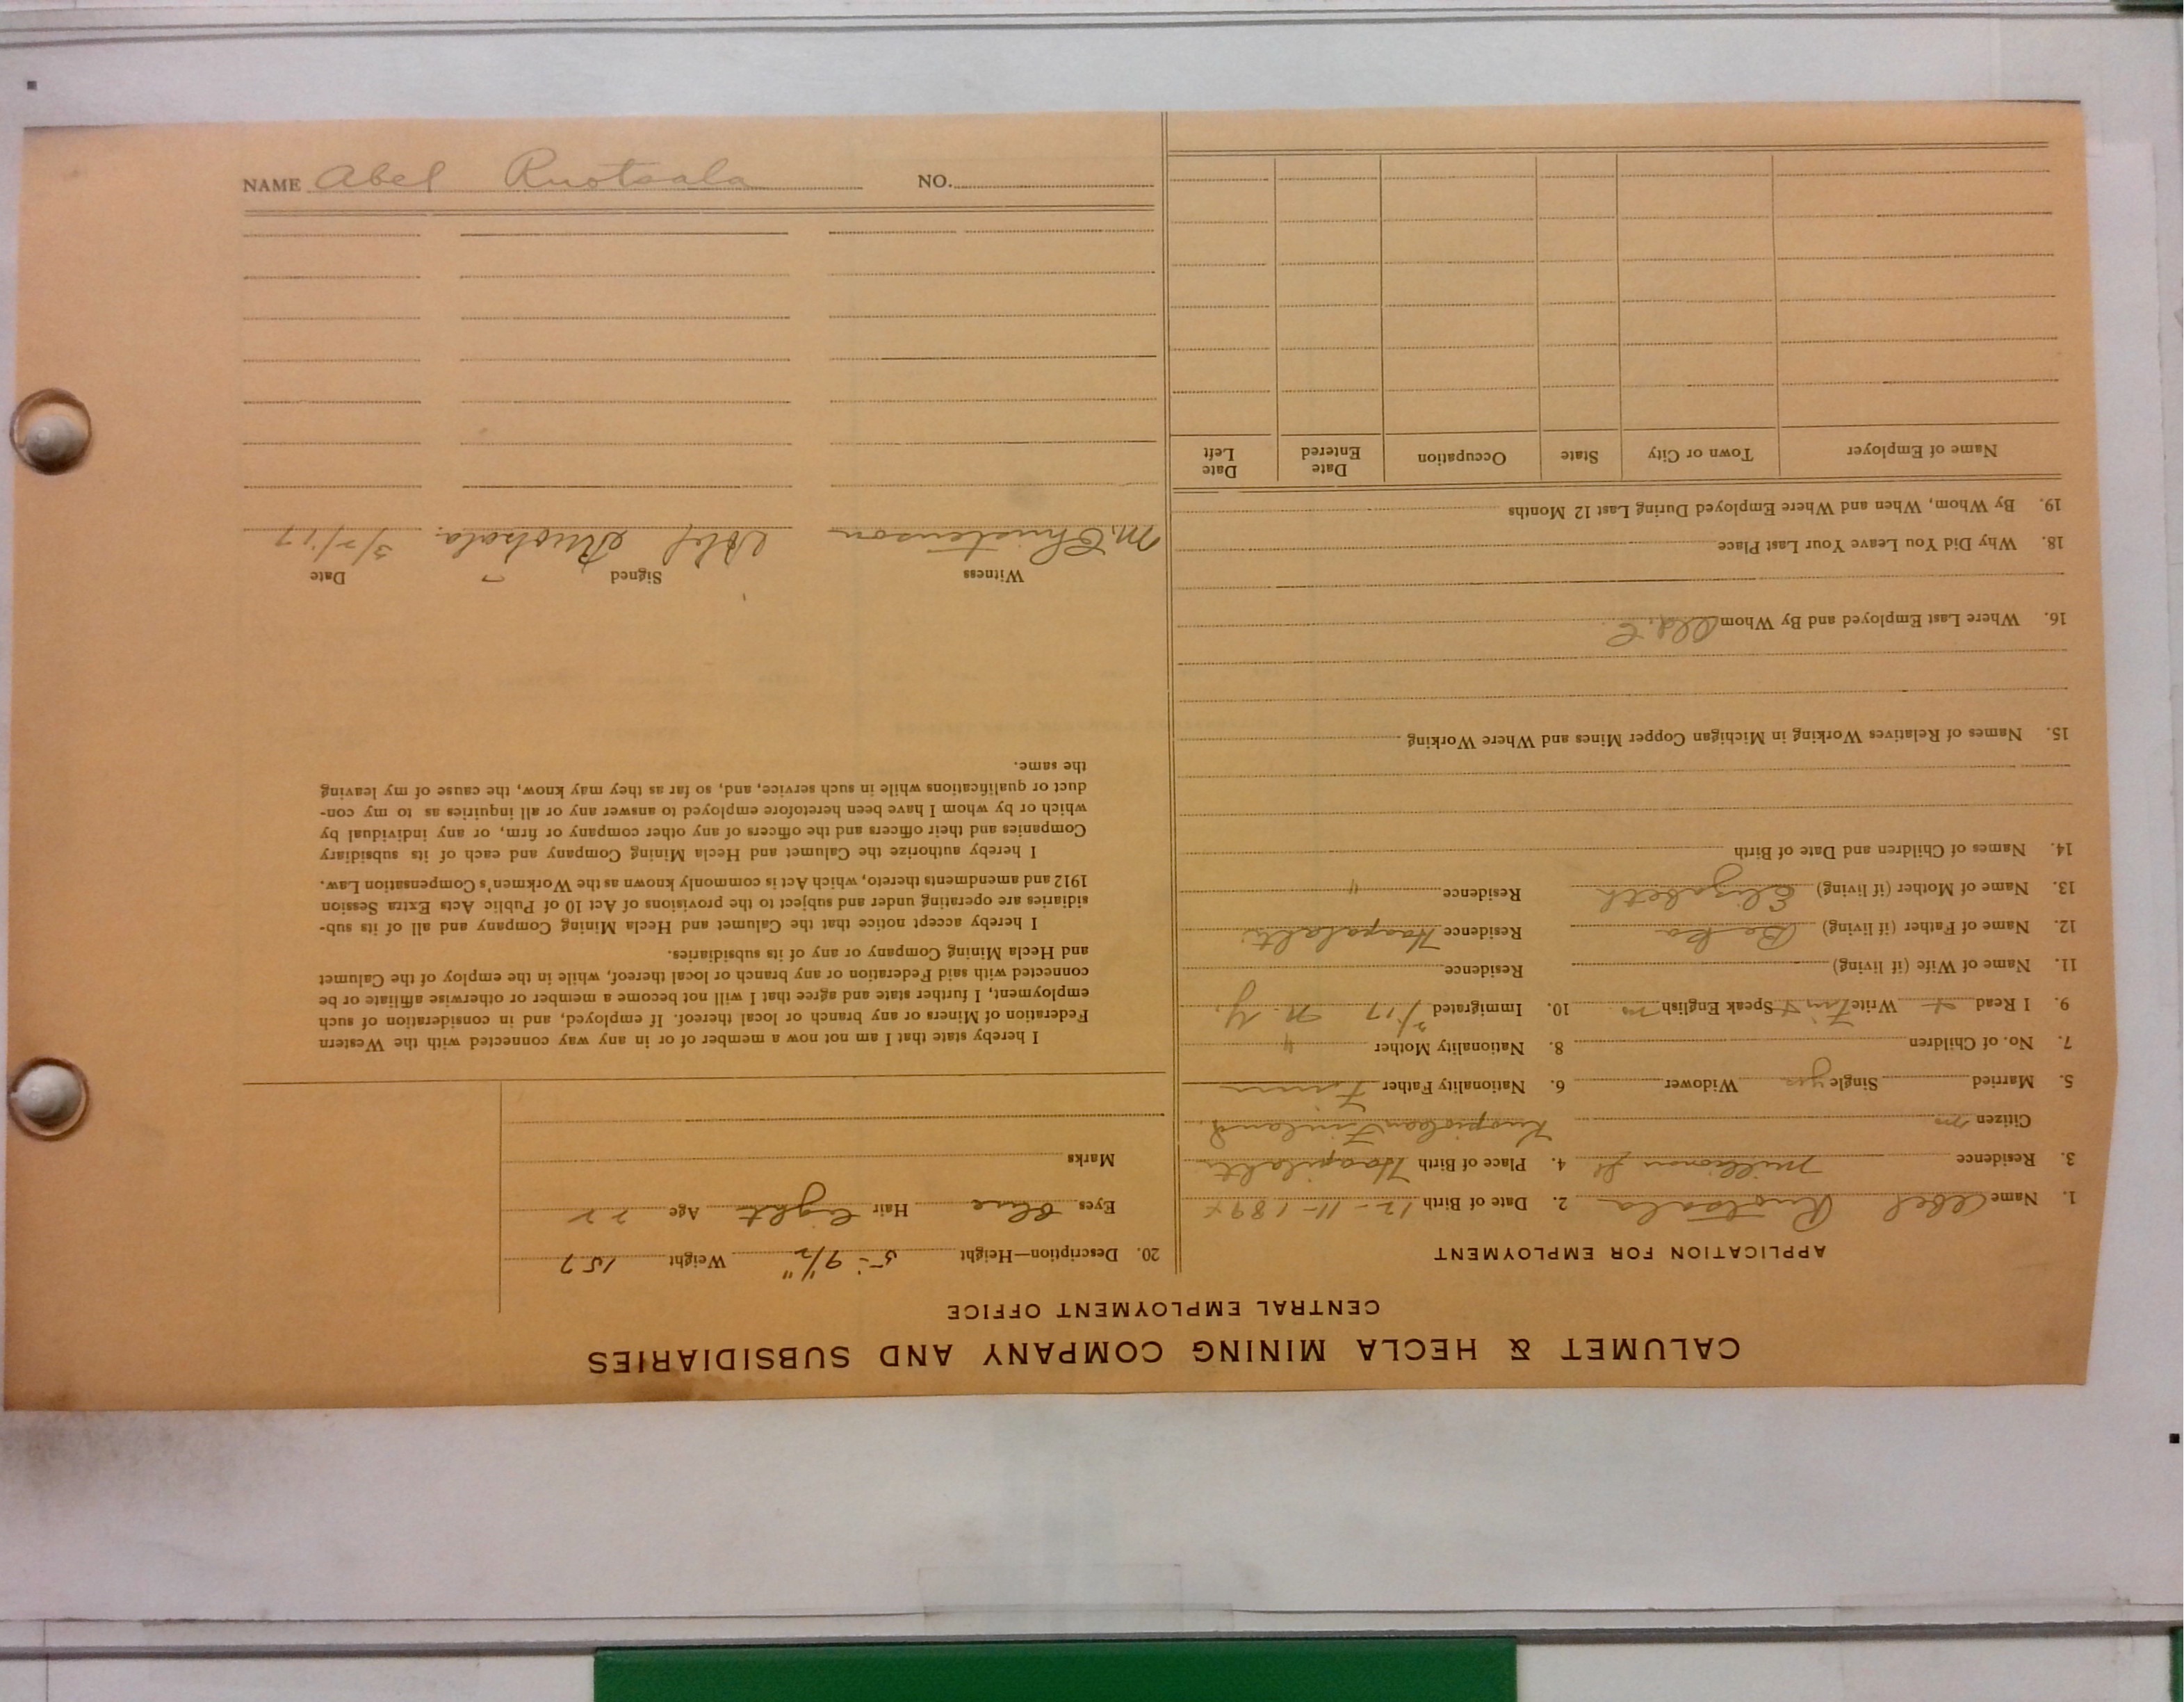 CALUMET & HECLA MINING COMPANY AND SUBSIDIARIES
CENTRAL EMPLOYMENT OFFICE
APPLICATION FOR EMPLOYMENT
1. Name Abel Ruotsala 2. Date of Birth 12-11-189
3. Residence Millionair St 4. Place of Birth
Citizen Finland
5. Married Single yes Widower 6. Nationality Father Finn
7. No. of Children 8. Nationality Mother "
9. I Read Write Finn Speak English 10. Immigrated /17 N. Y.
11. Name of Wife (if living) Residence
12. Name of Father (if living) Residence
13. Name of Mother (if living) Elizabeth Residence "
14. Names of Children and Date of Birth
15. Names of Relatives Working in Michigan Copper Mines and Where Working
16. Where Last Employed and By Whom
18. Why Did You Leave Your Last Place
19. By Whom, When and Where Employed During Last 12 Months
Name of Employer Town or City State Occupation Date Entered Date Left
20. Description—Height 5-9 1/2" Weight 157
Eyes Blue Hair Light Age 22
Marks
I hereby state that I am not now a member of or in any way connected with the Western
Federation of Miners or any branch or local thereof. If employed, and in consideration of such
employment, I further state and agree that I will not become a member or otherwise affiliate or be
connected with said Federation or any branch or local thereof, while in the employ of the Calumet
and Hecla Mining Company or any of its subsidiaries.
I hereby accept notice that the Calumet and Hecla Mining Company and all of its sub-
sidiaries are operating under and subject to the provisions of Act 10 of Public Acts Extra Session
1912 and amendments thereto, which Act is commonly known as the Workmen's Compensation Law.
I hereby authorize the Calumet and Hecla Mining Company and each of its subsidiary
Companies and their officers and the officers of any other company or firm, or any individual by
which or by whom I have been heretofore employed to answer any or all inquiries as to my con-
duct or qualifications while in such service, and, so far as they may know, the cause of my leaving
the same.
Witness Signed Date
M. Christenson Abel Ruotsala. 3/7/17
NAME Abel Ruotsala NO.